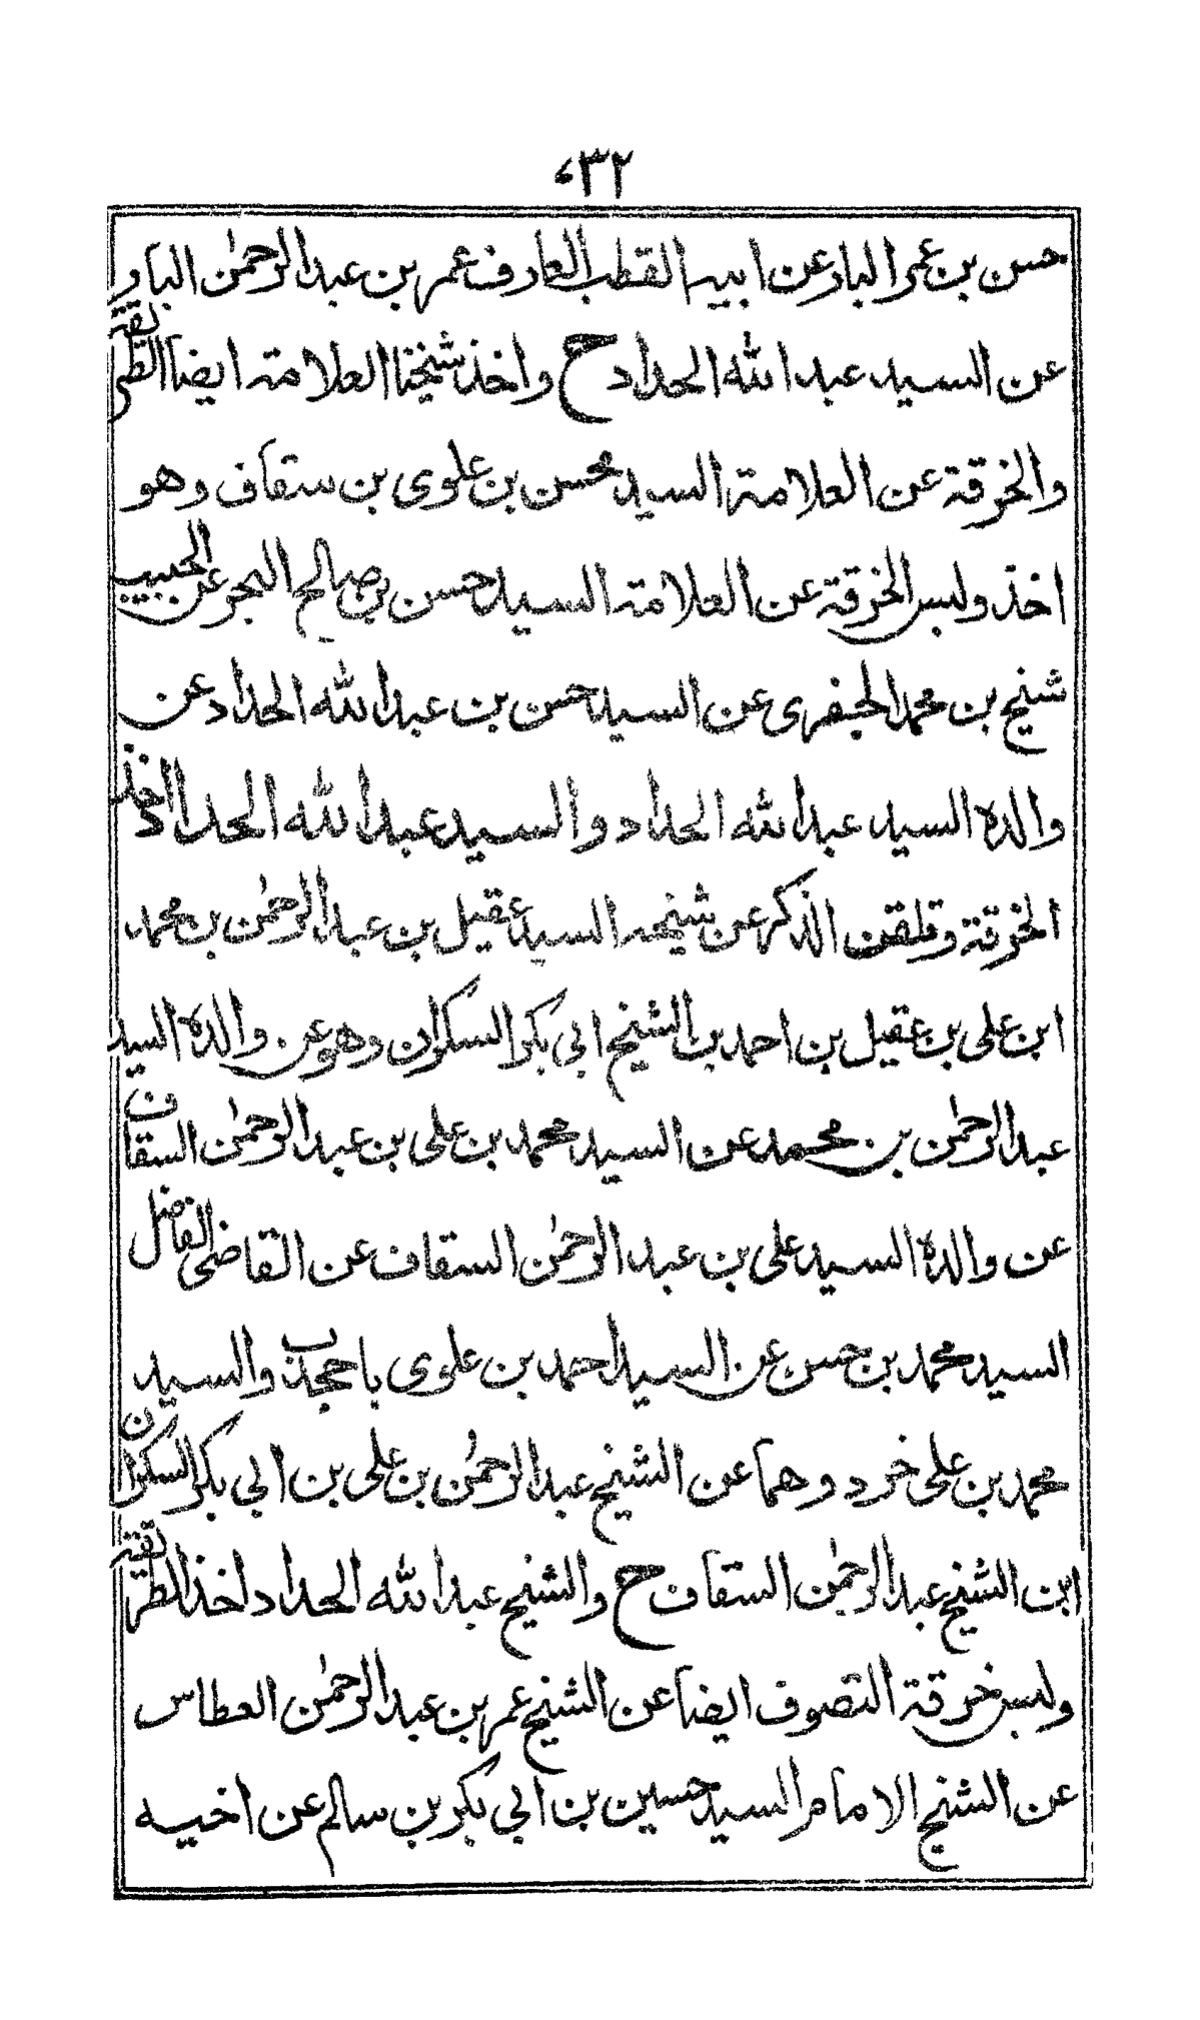 ٢٣٢
حسن بن عمر البار عن ابيه القطب العارف عمر بن عبد الرحمٰن البار و
عن السيد عبد الله الحداد ح واخذ شيخنا العلامة ايضا الطريقة
والخرقة عن العلامة السيد محسن بن علوى بن سقاف وهو
اخذ ولبس الخرقة عن العلامة السيد حسن بن صالح البحر عن الحبيب
شيخ بن محمد الجفرى عن السيد حسن بن عبد الله الحداد عن
والده السيد عبد الله الحداد والسيد عبد الله الحداد اخذ
الخرقة وتلقن الذكر عن شيخه السيد عقيل بن عبد الرحمٰن بن محمد
ابن على بن عقيل بن احمد بن الشيخ ابى بكر السكران وهو عن والده السيد
عبد الرحمٰن بن محمد عن السيد محمد بن على بن عبد الرحمٰن السقاف
عن والده السيد على بن عبد الرحمٰن السقاف عن القاضى الفاضل
السيد محمد بن حسن عن السيد احمد بن علوى باجحدب والسيد
محمد بن على خرد وهما عن الشيخ عبد الرحمٰن بن على بن ابى بكر السكران
ابن الشيخ عبد الرحمٰن السقاف ح والشيخ عبد الله الحداد اخذ الطريقة
ولبس خرقة التصوف ايضا عن الشيخ عمر بن عبد الرحمٰن العطاس
عن الشيخ الامام السيد حسين بن ابى بكر بن سالم عن اخيه